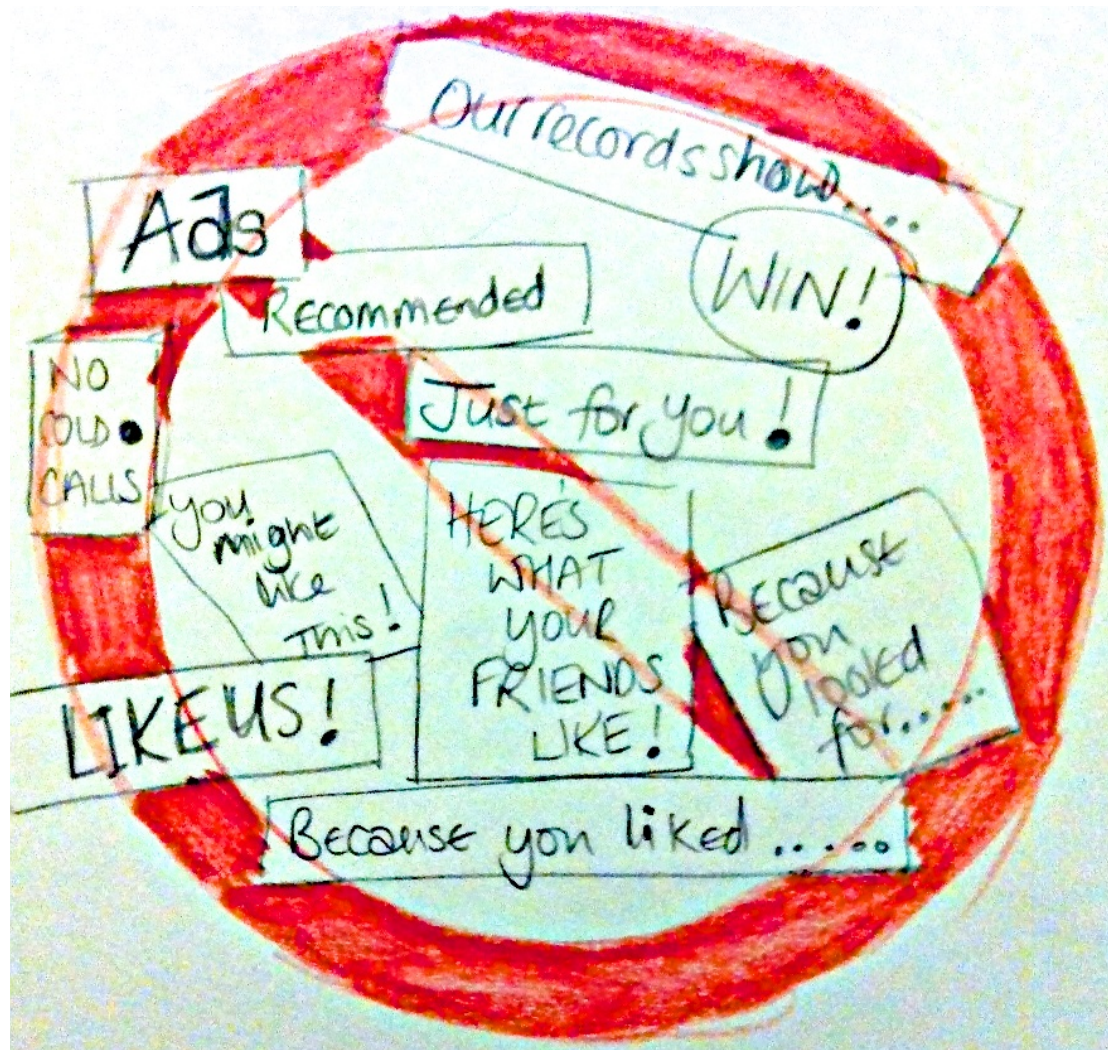 Our records show....
Ads
WIN!
Recommended
Just for you!
NO
COLD
CALLS
You
might
like
This!
HERE'S
WHAT
YOUR
FRIENDS
LIKE!
Because
you
looked
for......
LIKE US!
Because you liked .....